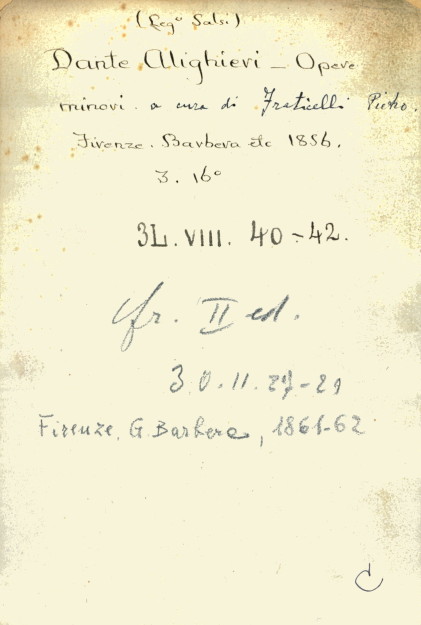 (Leg° Salsi)
Dante Alighieri - Opere
minori a cura di Fraticelli Pietro.
Firenze. Barbera etc 1856.
3. 16°
3L. VIII. 40-42.
cfr. II ed.
30.11.27-29
Firenze, G. Barbera, 1861-62
C